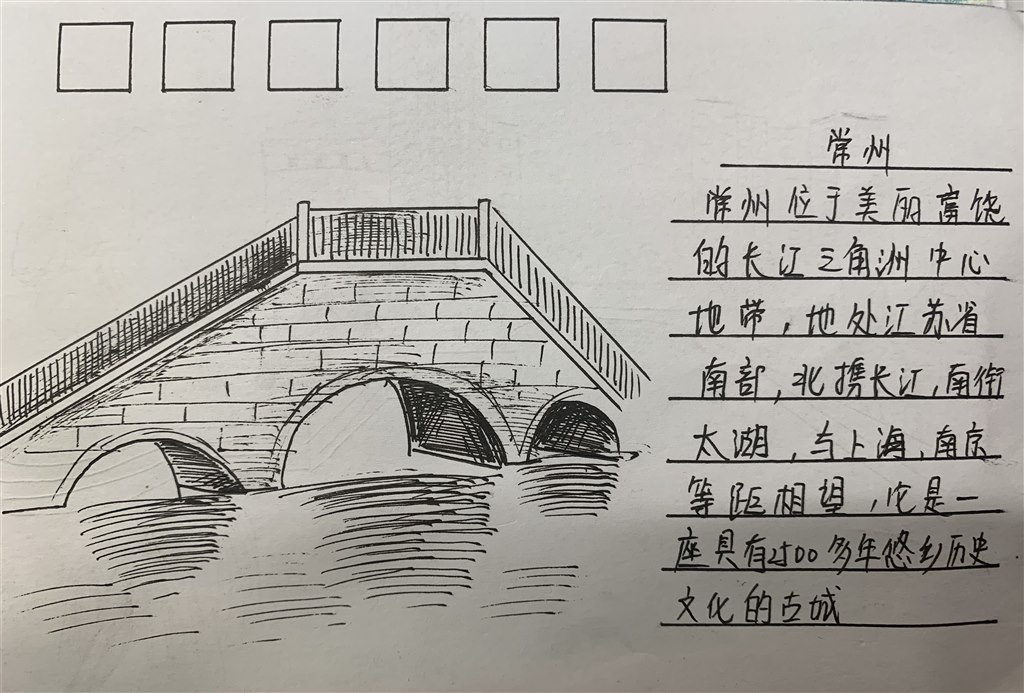 常州
常州位于美丽富饶
的长江三角洲中心
地带，地处江苏省
南部，北携长江，南衔
太湖，与上海，南京
等距相望，它是一
座具有2500多年悠乡历史
文化的古城